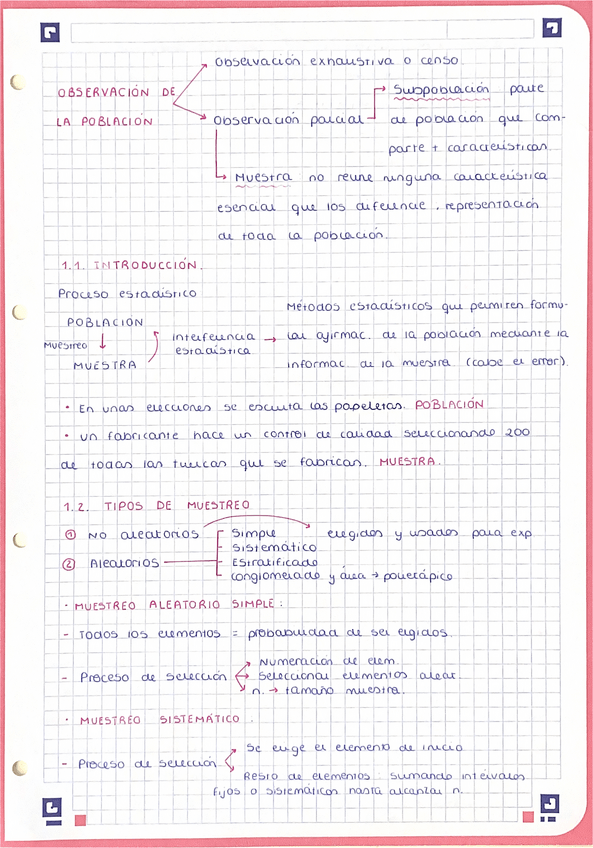 Observación exhaustiva o censo.
OBSERVACIÓN DE
LA POBLACIÓN
Observación parcial
Subpoblación parte
de población que com-
parte + características.
Muestra no reune ninguna característica
esencial que los diferencie. representación
de toda la población.
1.1. INTRODUCCIÓN.
Proceso estadístico
POBLACIÓN
Muestreo
MUESTRA
interferencia
estadística
Métodos estadísticos que permiten formu-
lar afirmac. de la población mediante la
informac. de la muestra (cabe el error).
· En unas elecciones se escruta las papeletas. POBLACIÓN
· un fabricante hace un control de calidad seleccionando 200
de todas las tuercas que se fabrican. MUESTRA.
1.2. TIPOS DE MUESTREO
① No aleatorios
elegidos y usados para exp
② Aleatorios
Simple
Sistemático
Estratificado
conglomerado y área → polietápico
· MUESTREO ALEATORIO SIMPLE:
- Todos los elementos = probabilidad de ser elgidos.
- Proceso de selección
Numeración de elem.
Seleccionar elementos aleat.
n. → tamaño muestra.
· MUESTREO SISTEMÁTICO.
- Proceso de selección
Se elige el elemento de inicio
Resto de elementos: sumando intervalos
fijos o sistemáticos hasta alcanzar n.